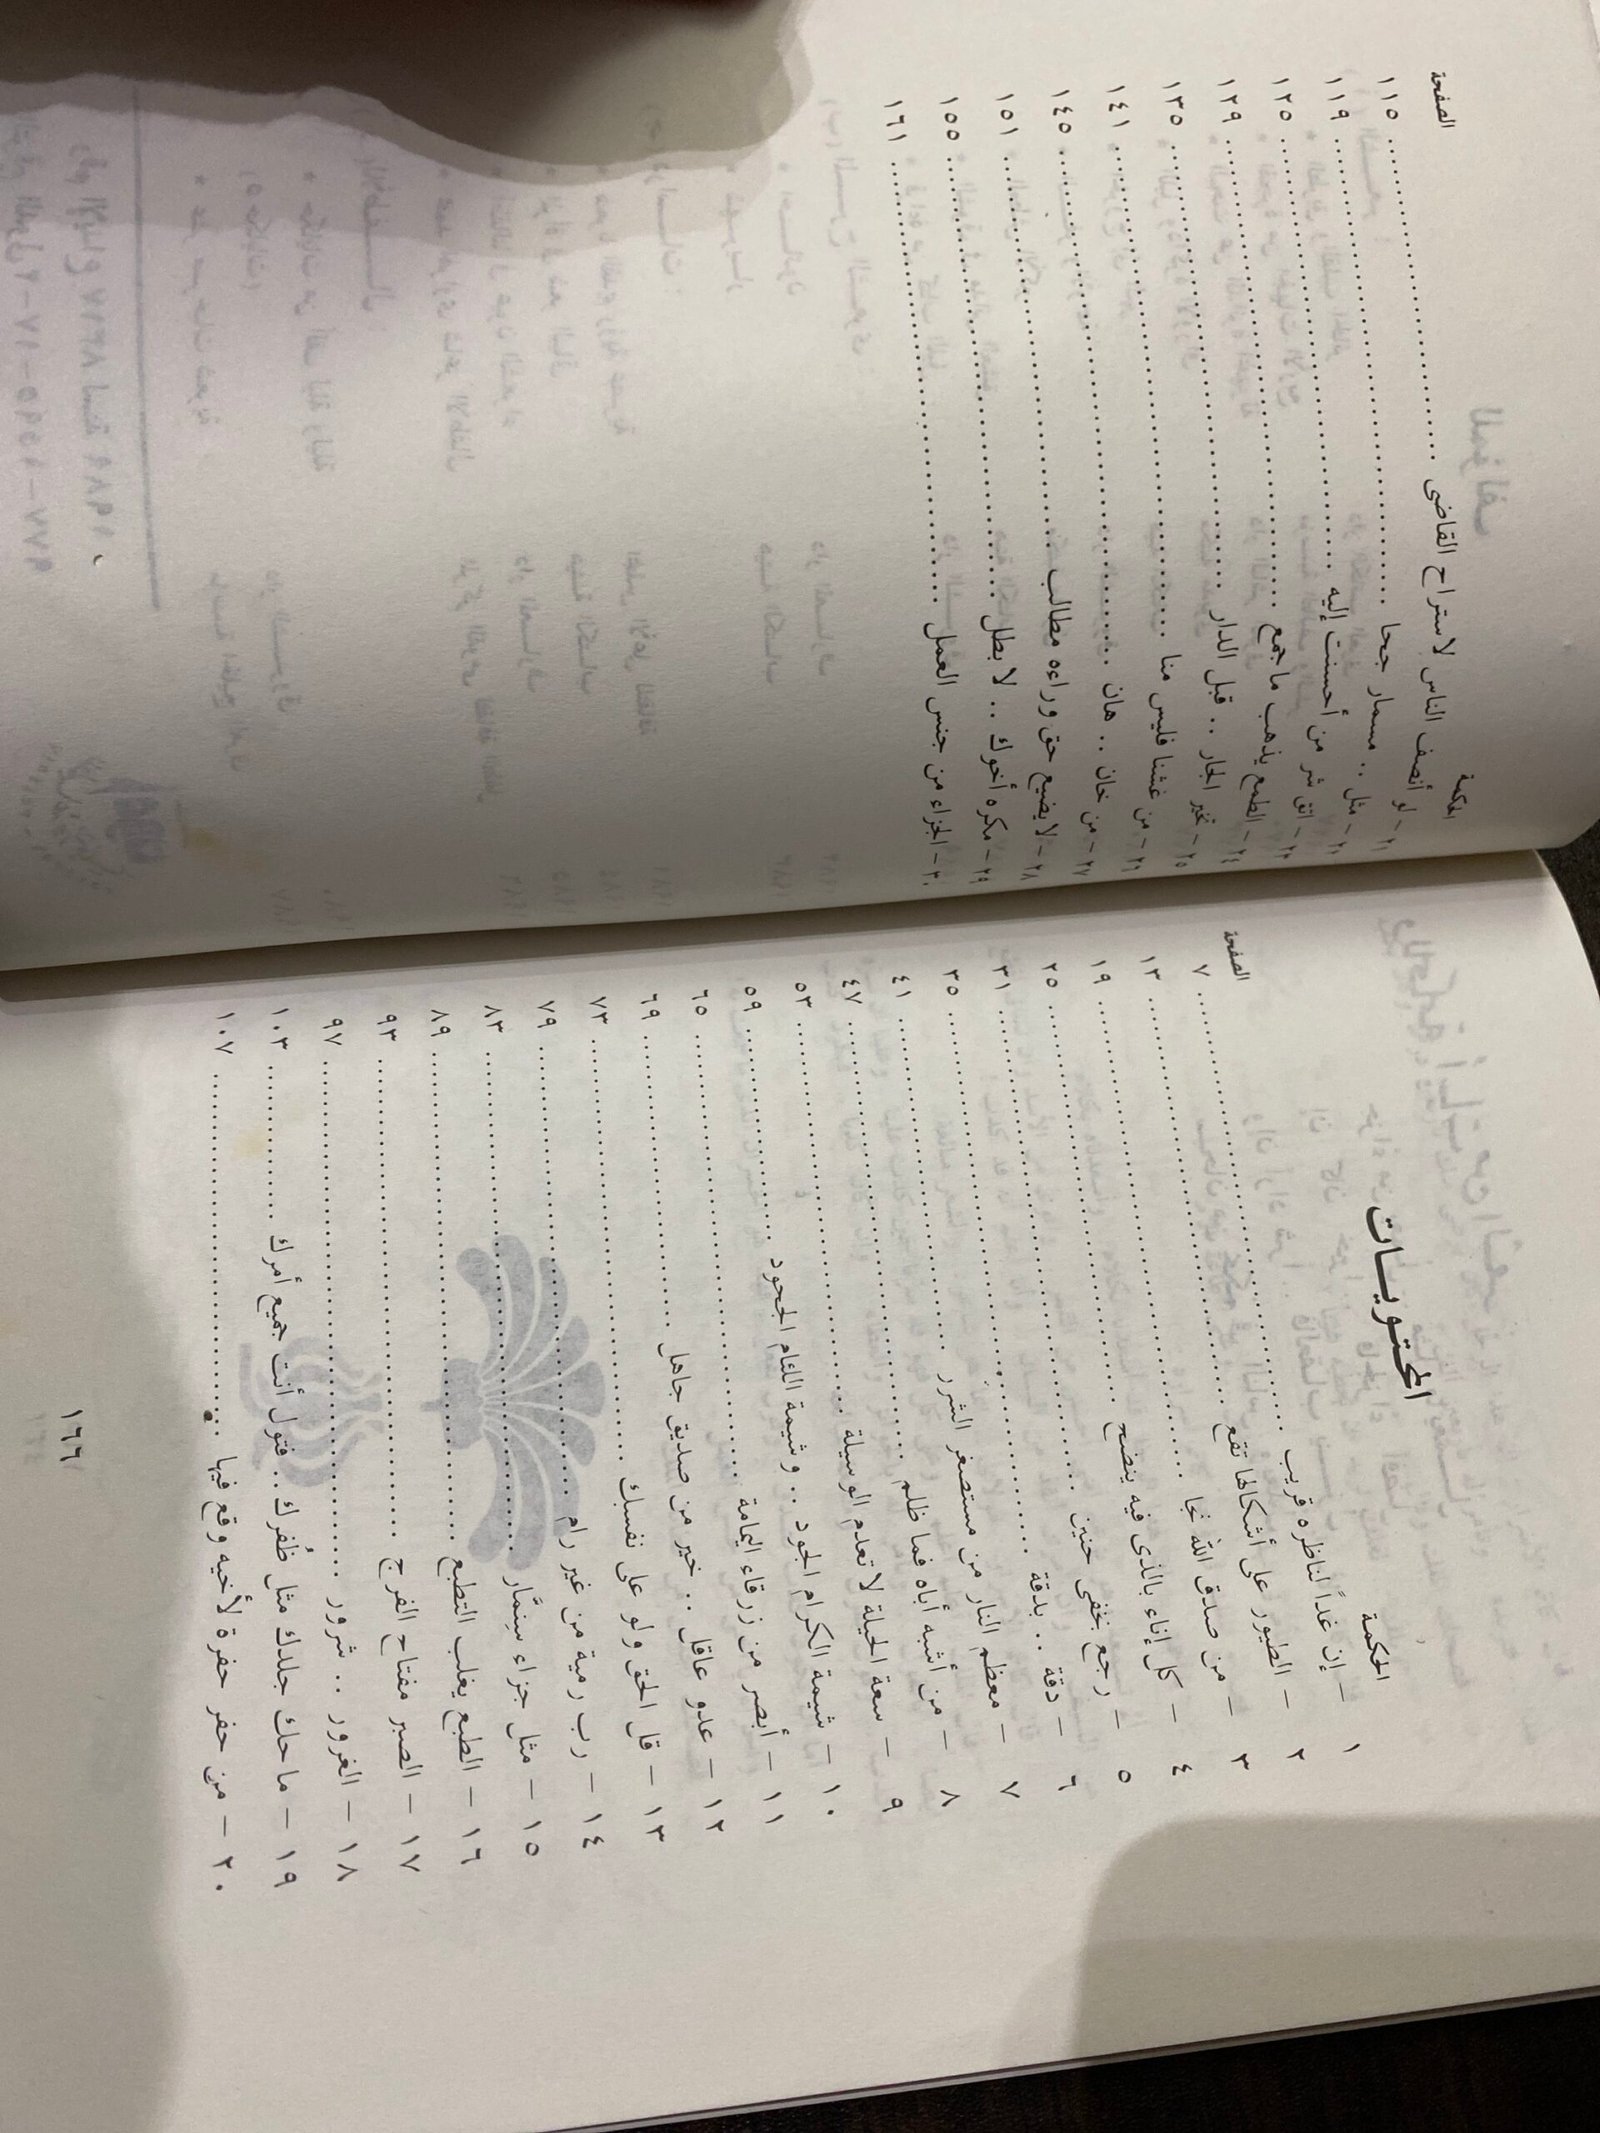 المحتويات
الحكمة الصفحة
١ – إن غداً لناظره قريب ........ ٧
٢ – الطيور على أشكالها تقع ........ ١٣
٣ – من صدق الله نجا ........ ١٩
٤ – كل إناء بالذى فيه ينضح ........ ٢٥
٥ – رجع بخفى حنين ........ ٣١
٦ – دقة .. بدقة ........ ٣٥
٧ – معظم النار من مستصغر الشرر ........ ٤١
٨ – من أشبه أباه فما ظلم ........ ٤٧
٩ – سعة الحيلة لا تعدم الوسيلة ........ ٥٣
١٠ – شيمة الكرام الجود .. وشيمة اللئام الجحود ........ ٥٩
١١ – أبصر من زرقاء اليمامة ........ ٦٥
١٢ – عدو عاقل .. خير من صديق جاهل ........ ٦٩
١٣ – قل الحق ولو على نفسك ........ ٧٣
١٤ – رب رمية من غير رام ........ ٧٩
١٥ – مثل جزاء سِنِمَّار ........ ٨٣
١٦ – الطبع يغلب التطبع ........ ٨٩
١٧ – الصبر مفتاح الفرج ........ ٩٣
١٨ – الغرور .. شرور ........ ٩٧
١٩ – ما حك جلدك مثل ظُفرك .. فتول أنت جميع أمرك ........ ١٠٣
٢٠ – من حفر حفرة لأخيه وقع فيها ........ ١٠٧
١٦٦
الحكمة الصفحة
٢١ – لو أنصف الناس لاستراح القاضى ........ ١١٥
٢٢ – مثل .. مسمار جحا ........ ١١٩
٢٣ – اتق شر من أحسنت إليه ........ ١٢٥
٢٤ – الطمع يذهب ما جمع ........ ١٢٩
٢٥ – تخير الجار .. قبل الدار ........ ١٣٥
٢٦ – من غشنا فليس منا ........ ١٤١
٢٧ – من خان .. هان ........ ١٤٥
٢٨ – لا يضيع حق وراءه مطالب ........ ١٥١
٢٩ – مكره أخوك .. لا بطل ........ ١٥٥
٣٠ – الجزاء من جنس العمل ........ ١٦١